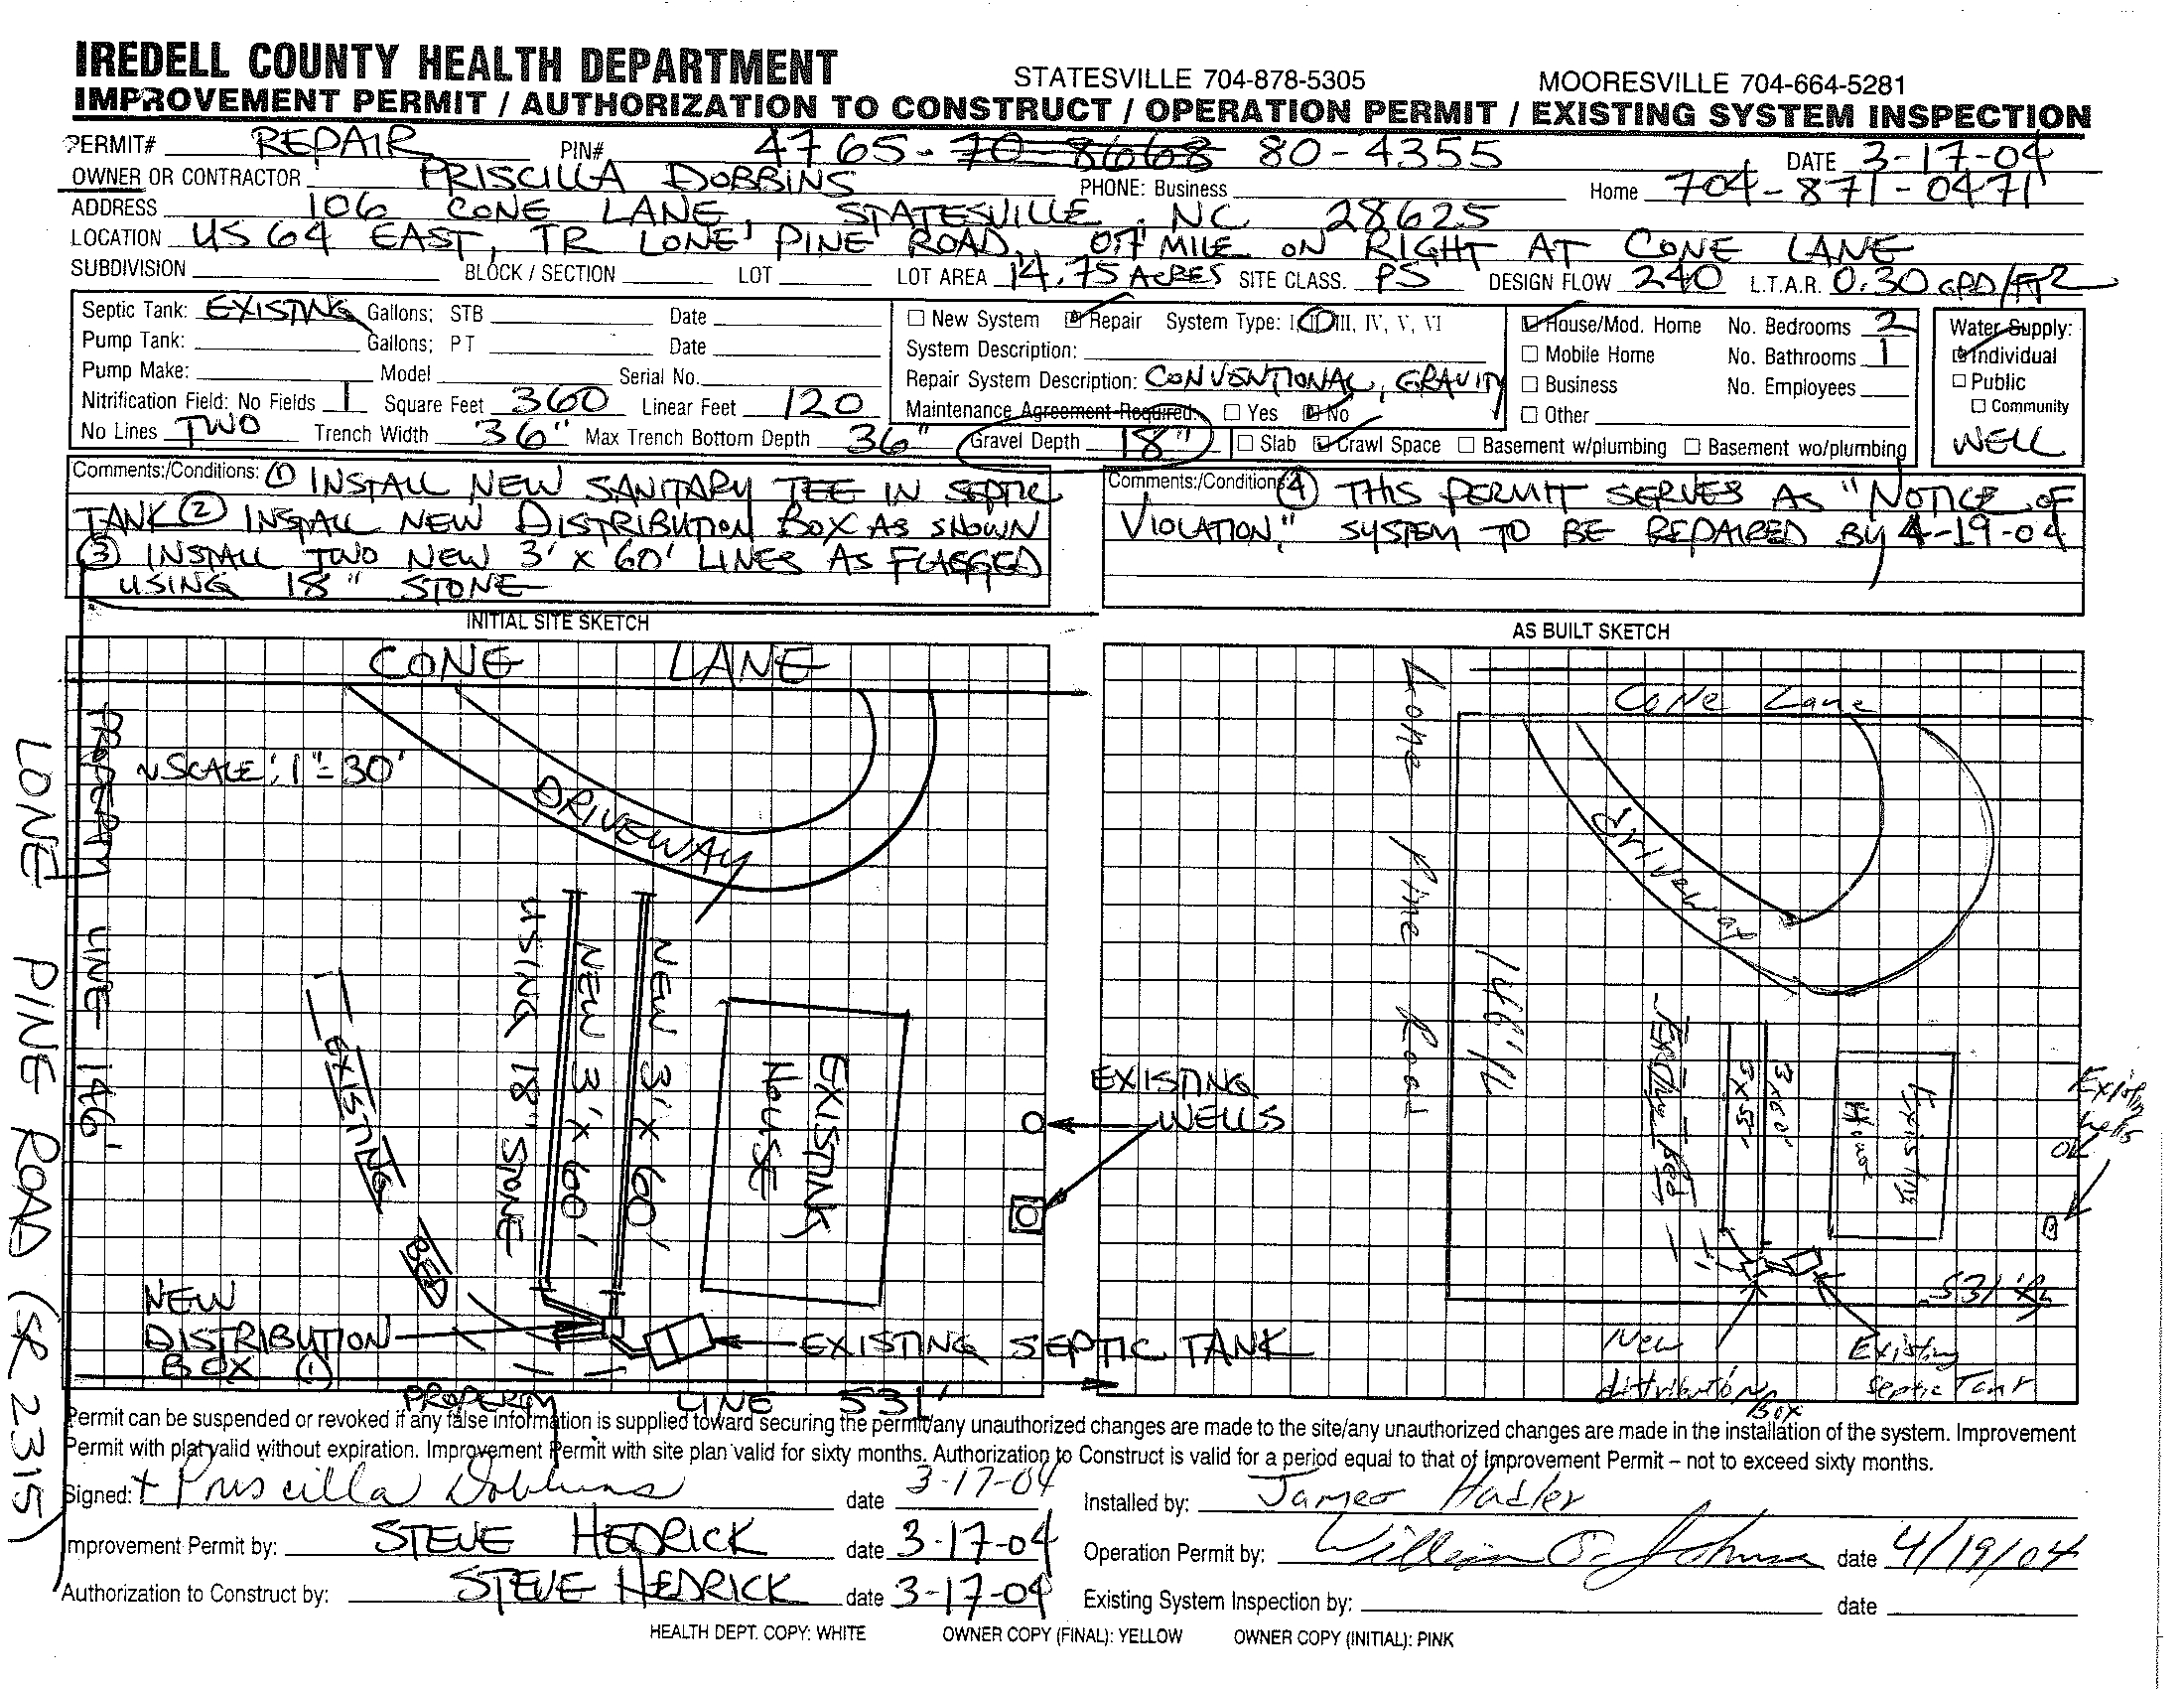 IREDELL COUNTY HEALTH DEPARTMENT STATESVILLE 704-878-5305 MOORESVILLE 704-664-5281
IMPROVEMENT PERMIT / AUTHORIZATION TO CONSTRUCT / OPERATION PERMIT / EXISTING SYSTEM INSPECTION
PERMIT# REPAIR PIN# 4765-70-8668 80-4355 DATE 3-17-04
OWNER OR CONTRACTOR PRISCILLA DOBBINS PHONE: Business Home 704-871-0471
ADDRESS 106 CONE LANE, STATESVILLE, NC 28625
LOCATION US 64 EAST, TR LONE PINE ROAD, 0.7 MILE ON RIGHT AT CONE LANE
SUBDIVISION BLOCK / SECTION LOT LOT AREA 14.75 ACRES SITE CLASS. PS DESIGN FLOW 240 L.T.A.R. 0.30 GPD/FT2
Septic Tank: EXISTING Gallons; STB Date
Pump Tank: Gallons; PT Date
Pump Make: Model Serial No.
Nitrification Field: No Fields 1 Square Feet 360 Linear Feet 120
No Lines TWO Trench Width 36" Max Trench Bottom Depth 36" Gravel Depth 18"
New System Repair System Type: I, II, III, IV, V, VI
System Description:
Repair System Description: CONVENTIONAL, GRAVITY
Maintenance Agreement Required: Yes No
House/Mod. Home No. Bedrooms 2
Mobile Home No. Bathrooms 1
Business No. Employees
Other
Slab Crawl Space Basement w/plumbing Basement wo/plumbing
Water Supply:
Individual
Public
Community
WELL
Comments:/Conditions: ① INSTALL NEW SANITARY TEE IN SEPTIC
TANK ② INSTALL NEW DISTRIBUTION BOX AS SHOWN
③ INSTALL TWO NEW 3' X 60' LINES AS FLAGGED
USING 18" STONE
Comments:/Conditions ④ THIS PERMIT SERVES AS "NOTICE OF
VIOLATION," SYSTEM TO BE REPAIRED BY 4-19-04
INITIAL SITE SKETCH
CONE LANE
~SCALE: 1"=30'
DRIVEWAY
LONE PINE ROAD (SR 2315)
PROPERTY LINE 146'
EXISTING BED
USING 18" STONE
NEW 3' X 60'
NEW 3' X 60'
EXISTING
HOUSE
EXISTING
WELLS
NEW
DISTRIBUTION
BOX (1)
EXISTING SEPTIC TANK
PROPERTY LINE 531'
AS BUILT SKETCH
Cone Lane
Lone Pine Road
146' PL
Driveway
Existing Bed
3x55'
3x60'
Existing
House
Existing
Wells
OK
531' PL
New
distribution
Box
Existing
Septic Tank
Permit can be suspended or revoked if any false information is supplied toward securing the permit/any unauthorized changes are made to the site/any unauthorized changes are made in the installation of the system. Improvement
Permit with plat valid without expiration. Improvement Permit with site plan valid for sixty months. Authorization to Construct is valid for a period equal to that of Improvement Permit – not to exceed sixty months.
Signed: x Priscilla Dobbins date 3-17-04 Installed by: James Hadler
Improvement Permit by: STEVE HEDRICK date 3-17-04 Operation Permit by: William date 4/19/04
Authorization to Construct by: STEVE HEDRICK date 3-17-04 Existing System Inspection by: date
HEALTH DEPT. COPY: WHITE OWNER COPY (FINAL): YELLOW OWNER COPY (INITIAL): PINK